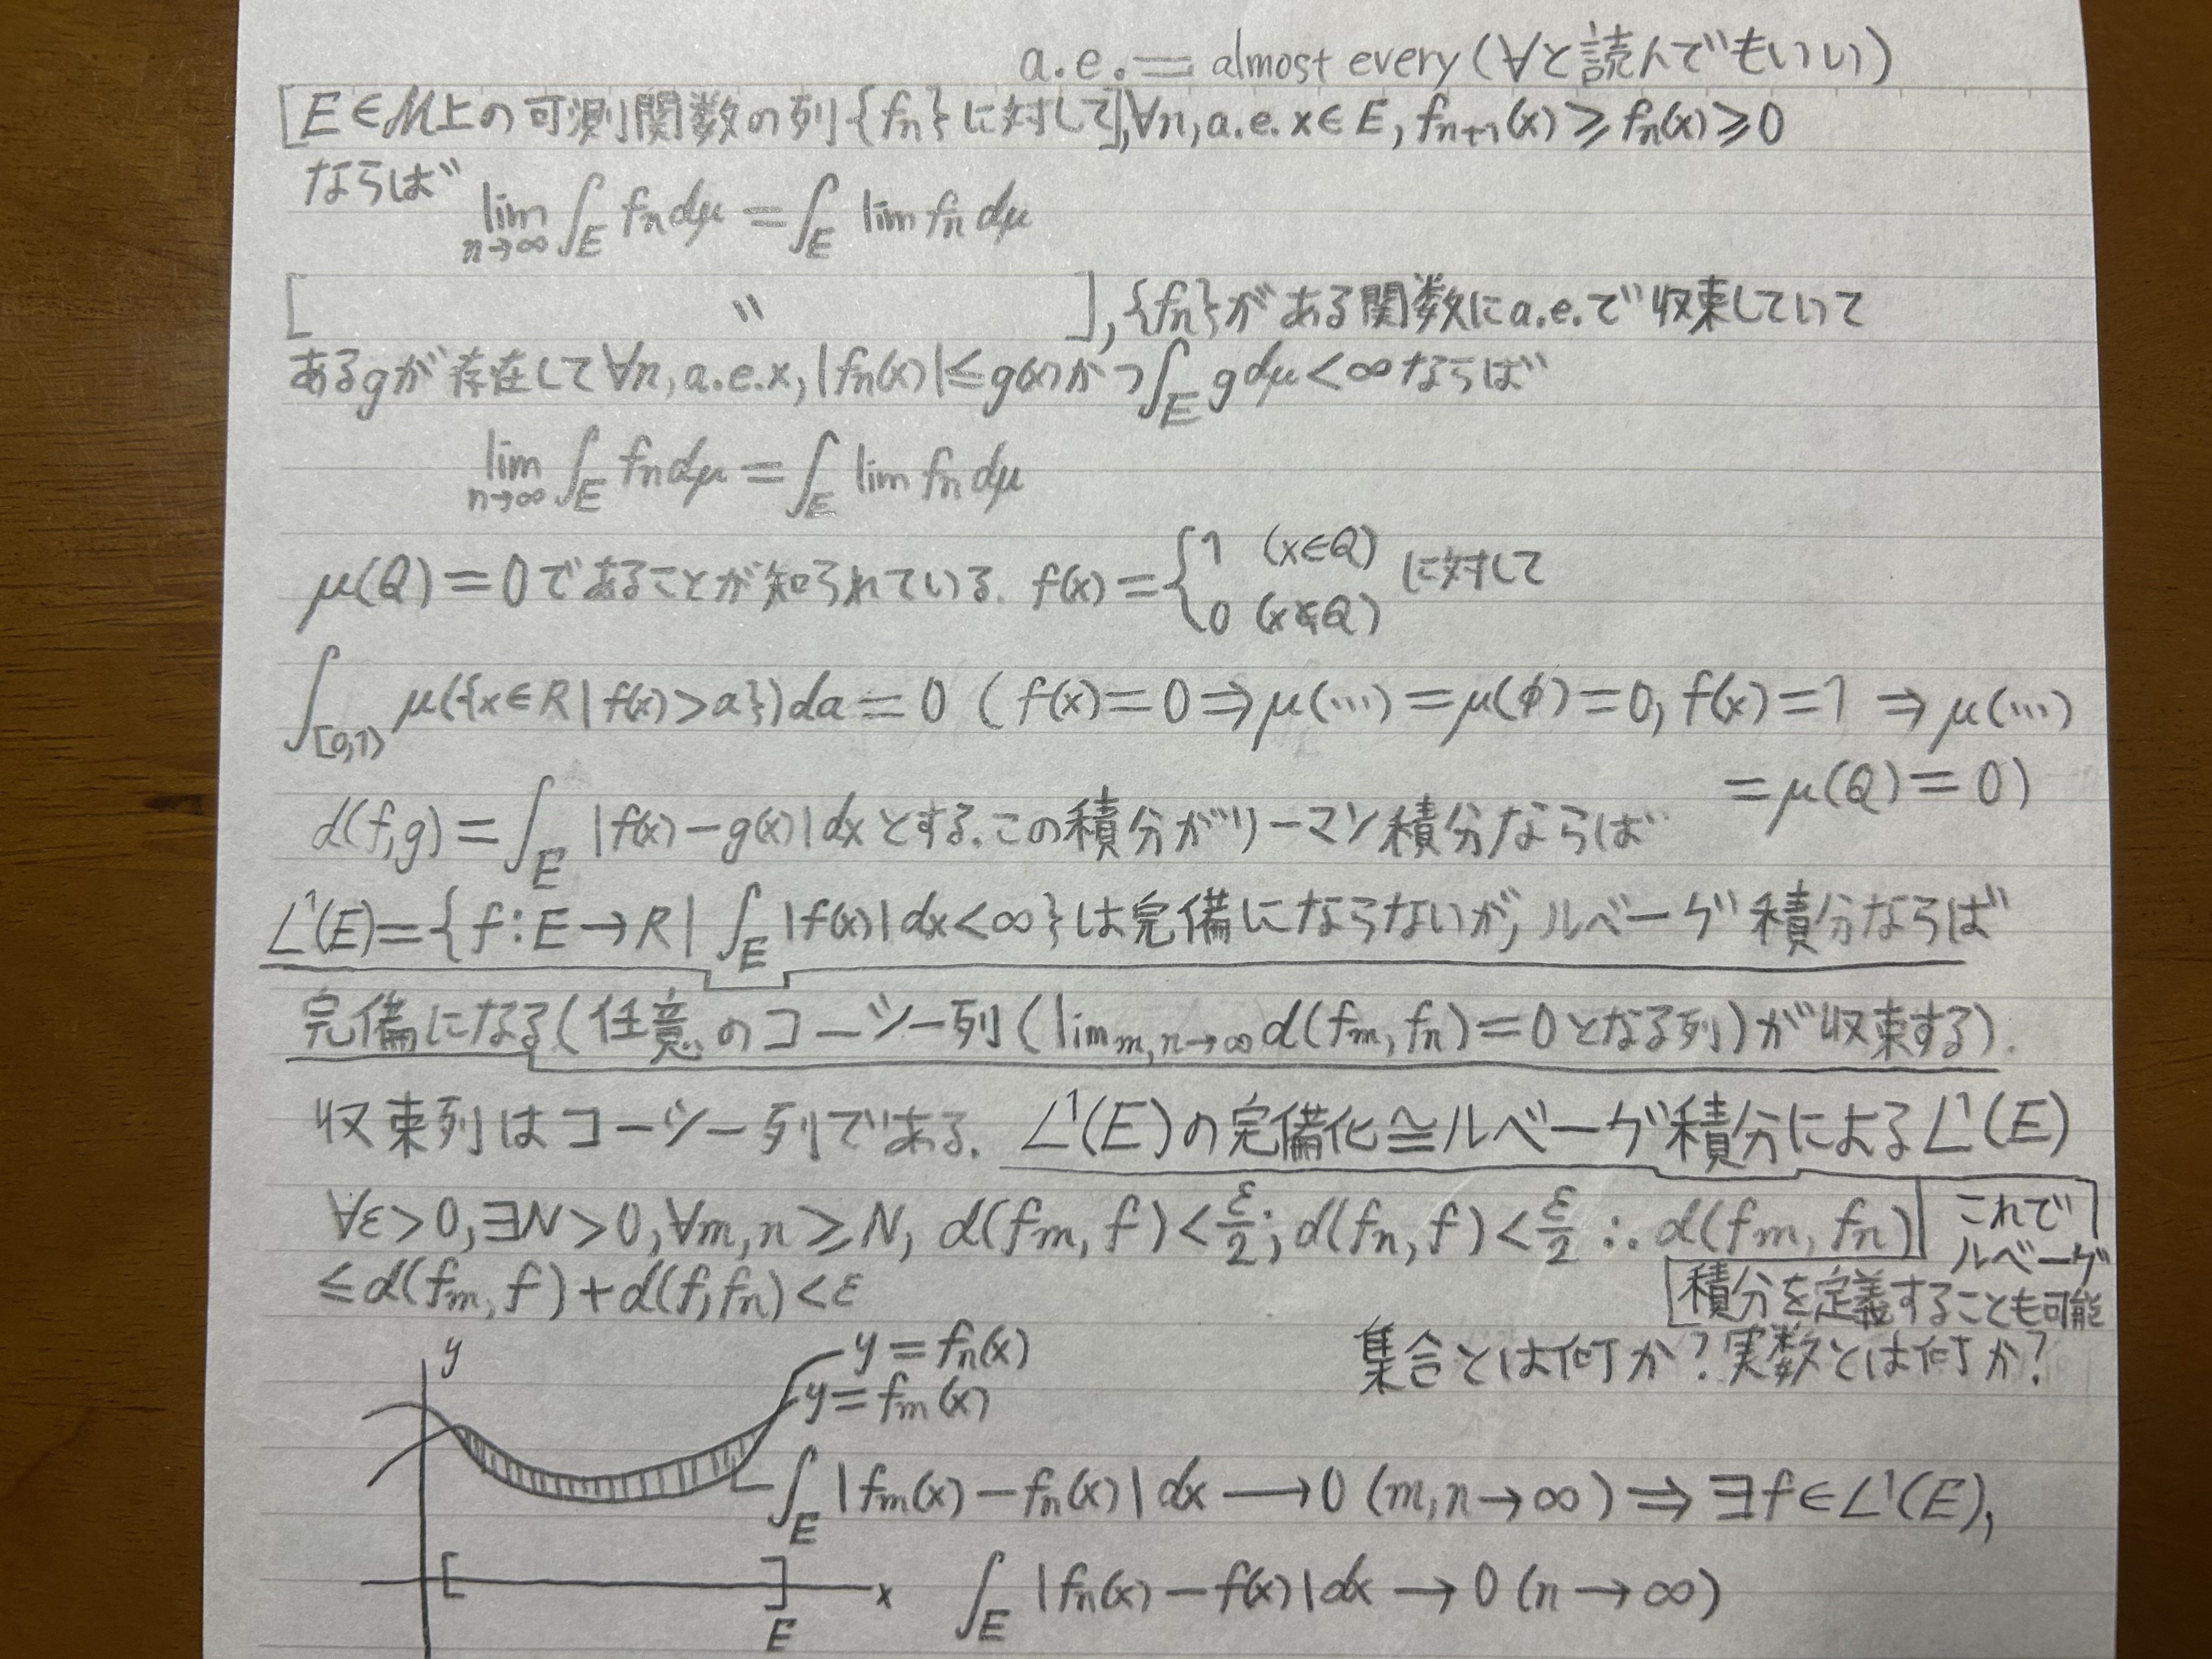 a.e.= almost every(∀と読んでもいい)
[E∈M上の可測関数の列{fn}に対して],∀n,a.e.x∈E,fn+1(x)≥fn(x)≥0
ならば
lim n→∞ ∫E fn dμ=∫E lim fn dμ
[ 〃 ],{fn}がある関数にa.e.で収束していて
あるgが存在して∀n,a.e.x,|fn(x)|≤g(x)かつ∫E g dμ<∞ならば
lim n→∞ ∫E fn dμ=∫E lim fn dμ
μ(Q)=0であることが知られている. f(x)={1 (x∈Q) 0 (x∉Q) に対して
∫[0,1) μ({x∈R|f(x)>a})da=0 (f(x)=0⇒μ(…)=μ(φ)=0, f(x)=1 ⇒μ(…)
=μ(Q)=0)
d(f,g)=∫E |f(x)-g(x)|dxとする.この積分がリーマン積分ならば
L¹(E)={f:E→R|∫E|f(x)|dx<∞}は完備にならないが,ルベーグ積分ならば
完備になる(任意のコーシー列(lim m,n→∞ d(fm,fn)=0となる列)が収束する).
収束列はコーシー列である. L¹(E)の完備化≅ルベーグ積分によるL¹(E)
∀ε>0,∃N>0,∀m,n≥N, d(fm,f)<ε/2; d(fn,f)<ε/2 ∴d(fm,fn)
≤d(fm,f)+d(f,fn)<ε
これで
ルベーグ
積分を定義することも可能
集合とは何か?実数とは何か?
y
y=fn(x)
y=fm(x)
∫E |fm(x)-fn(x)|dx→0 (m,n→∞)⇒∃f∈L¹(E),
[ ] x
E
∫E |fn(x)-f(x)|dx→0 (n→∞)